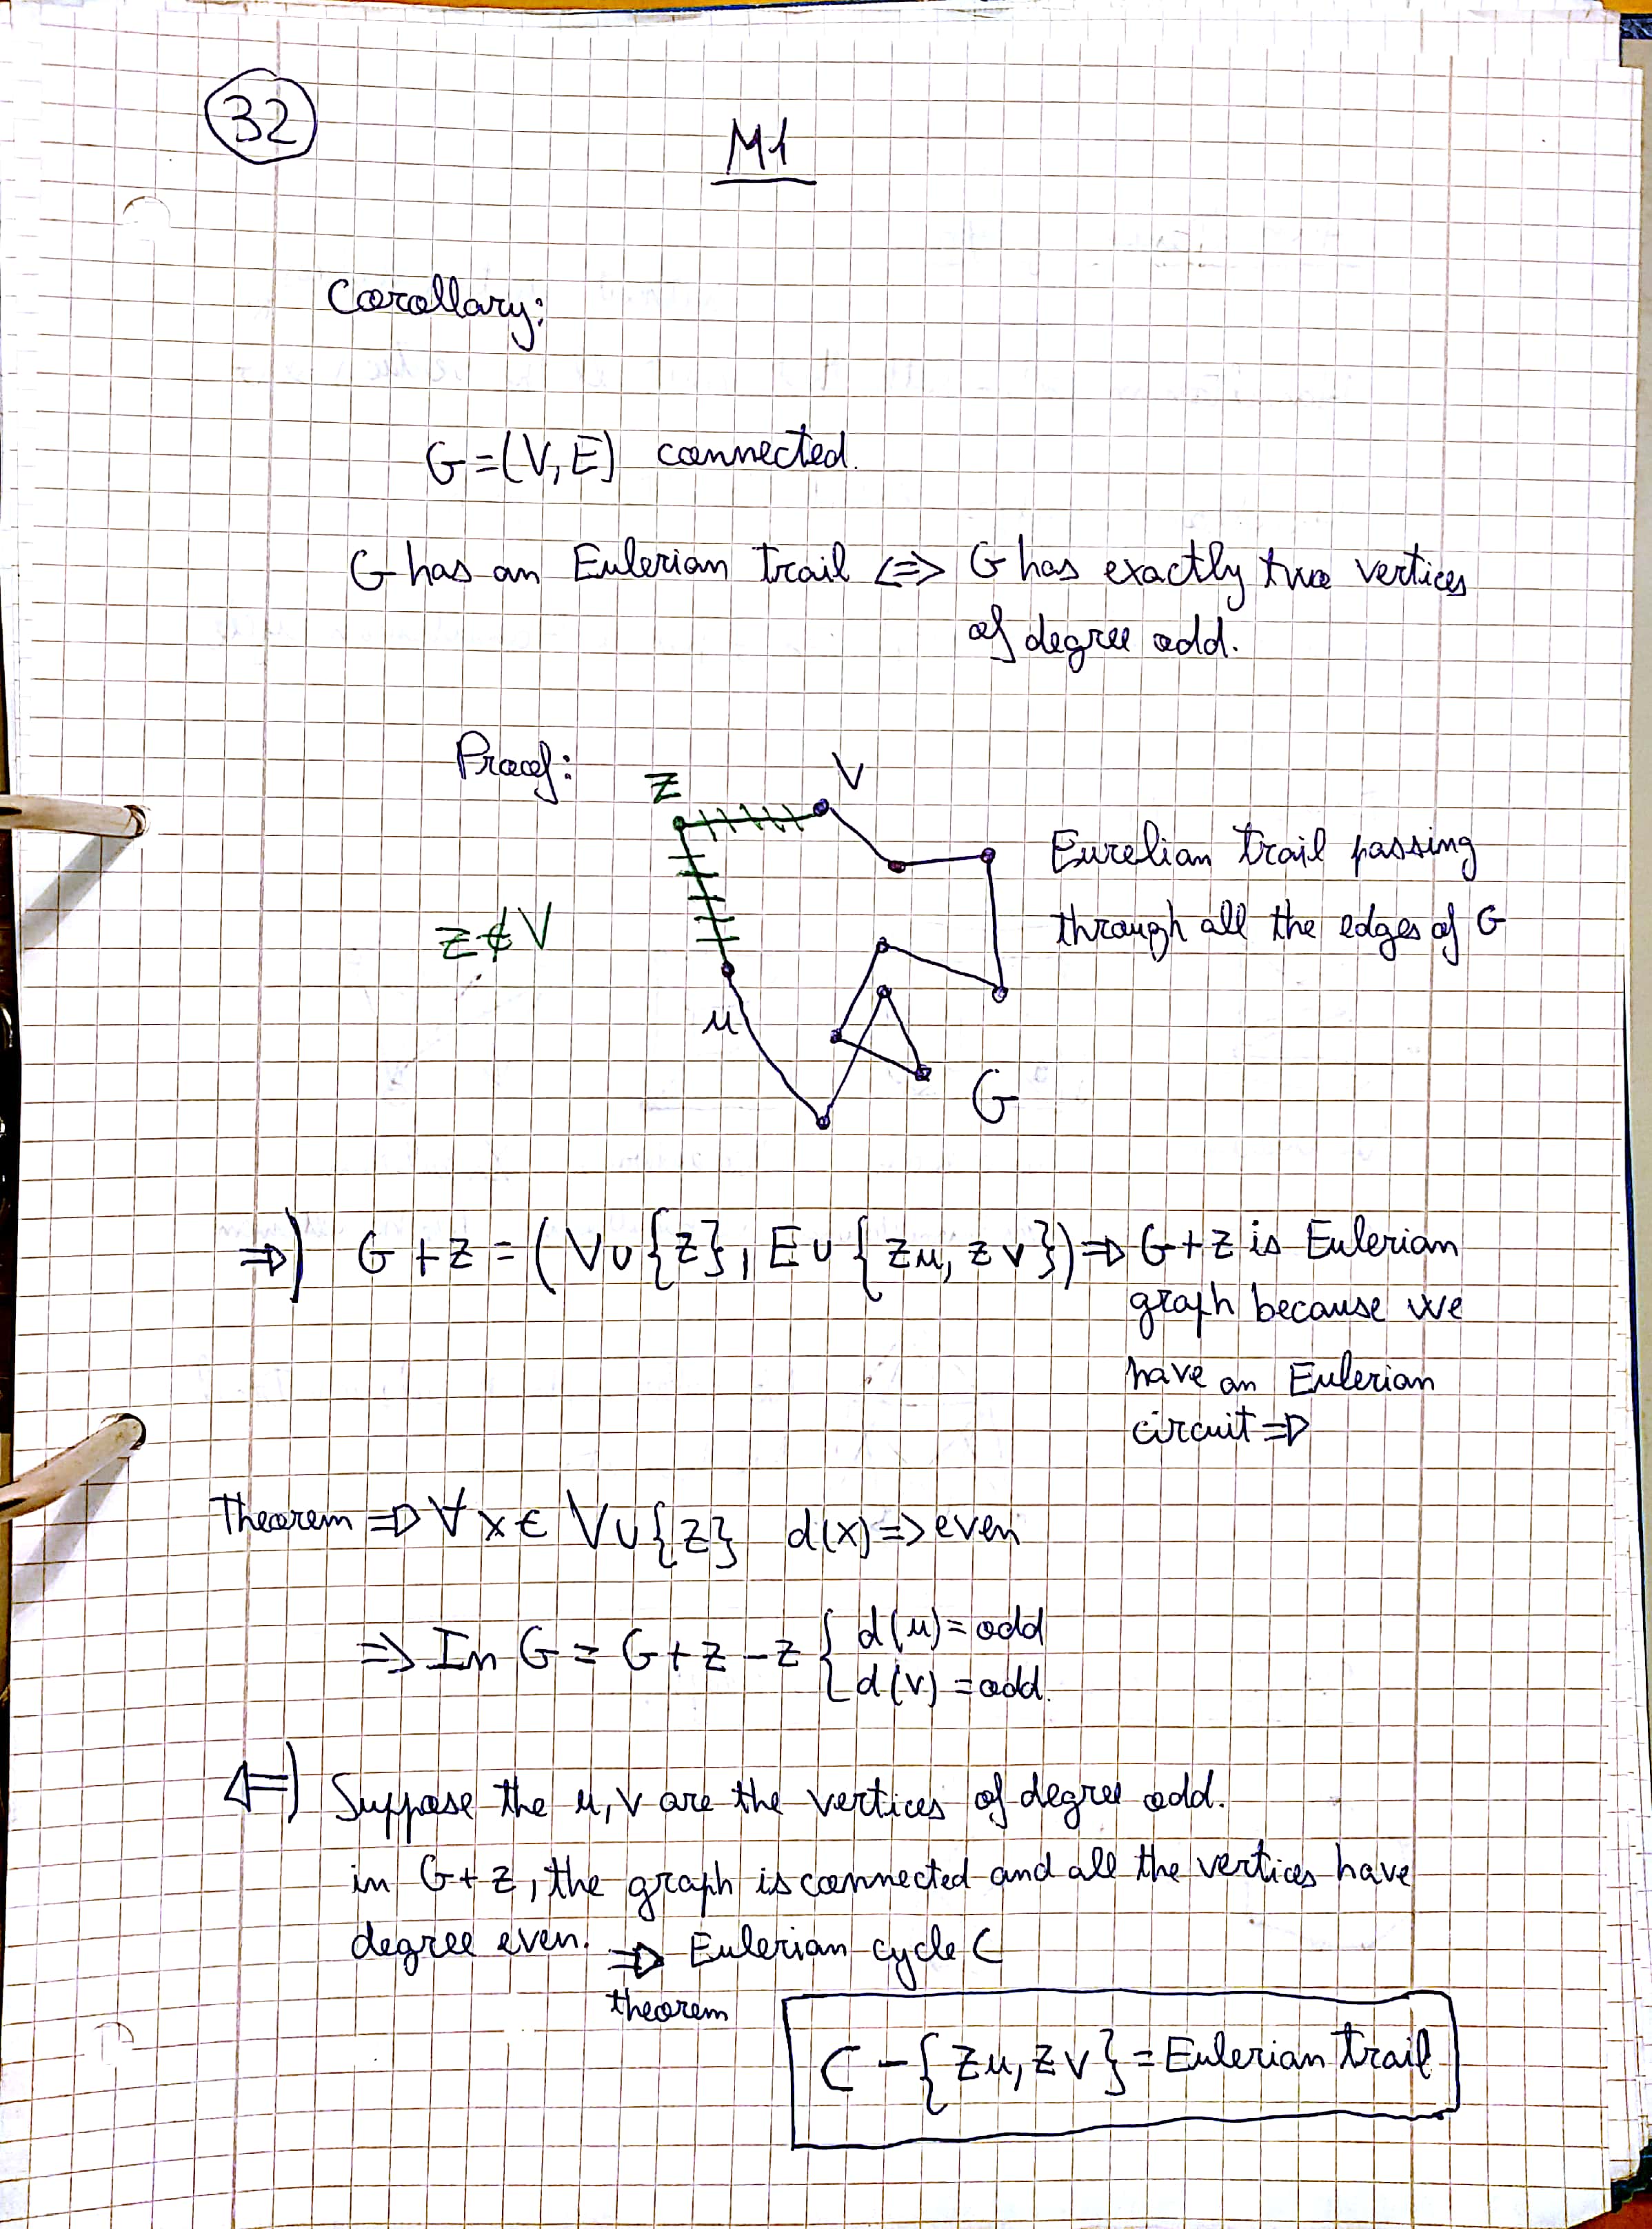 32
M1
Corollary:
G=(V,E) connected.
G has an Eulerian trail <=> G has exactly two vertices
of degree odd.
Proof:
z
v
Eurelian trail passing
z∉V
through all the edges of G
u
G
⇒) G+z=(V∪{z}, E∪{zu, zv})⇒ G+z is Eulerian
graph because we
have an Eulerian
circuit ⇒
Theorem ⇒ ∀x∈ V∪{z} d(x)=> even
=> In G = G+z-z { d(u)=odd
d(v)=odd.
⇐) Suppose the u,v are the vertices of degree odd.
in G+z, the graph is connected and all the vertices have
degree even. ⇒ Eulerian cycle C
theorem
C-{zu,zv}=Eulerian trail